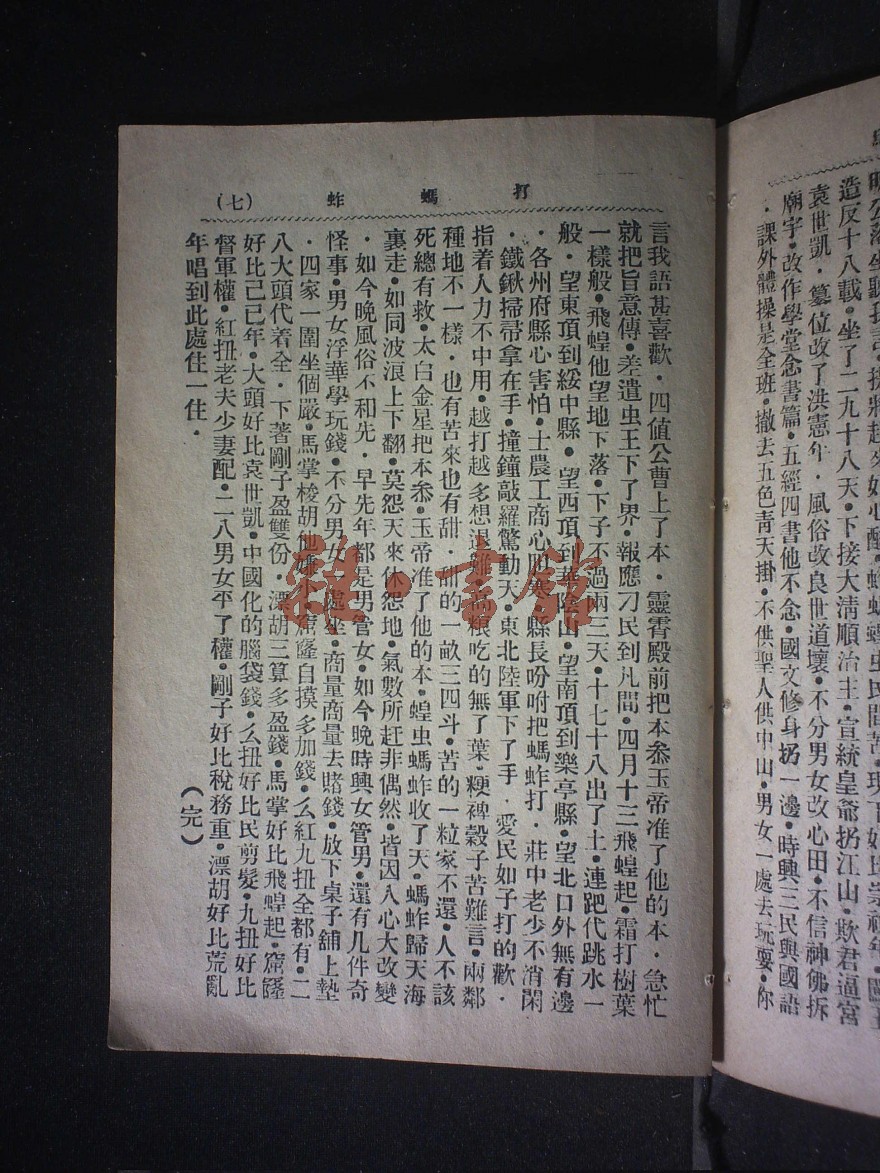 暇公落坐聽我言
造反十八載•坐了二九十八天•下接大清順治主•宣統皇爺扔江山•欺君逼宮
袁世凱•篡位改了洪憲年•風俗改良世道壞•不分男女改心田•不信神佛拆
廟宇•改作學堂念書篇•五經四書他不念•國文修身扔一邊•時興三民與國語
•課外體操是全班•撤去五色青天掛•不供聖人供中山•男女一處去玩耍•你
打螞蚱 (七)
言我語甚喜歡•四值公曹上了本•靈霄殿前把本叅玉帝准了他的本•急忙
就把旨意傳•差遣虫王下了界•報應刁民到凡間•四月十三飛蝗起•霜打樹葉
一樣般•飛蝗他望地下落•下子不過兩三天•十七十八出了土•連跑代跳水一
般•望東頂到綏中縣•望西頂到華陰山•望南頂到樂亭縣•望北口外無有邊
•各州府縣心害怕•士農工商心胆寒•縣長吩咐把螞蚱打•莊中老少不消閑
•鐵鍬掃帚拿在手•撞鐘敲羅驚動天•東北陸軍下了手•愛民如子打的歡•
指着人力不中用•越打越多想退難•高粮吃的無了葉•粳稗穀子苦難言•兩鄰
種地不一樣•也有苦來也有甜•甜的一畝三四斗•苦的一粒家不還•人不該
死總有救•太白金星把本叅•玉帝准了他的本•蝗虫螞蚱收了天•螞蚱歸天海
裏走•如同波浪上下翻•莫怨天來休怨地•氣數所赶非偶然•皆因人心大改變
•如今晚風俗不和先•早先年都是男管女•如今晚時興女管男•還有几件奇
怪事•男女浮華學玩錢•不分男女一處坐•商量商量去賭錢•放下桌子舖上墊
•四家一圍坐個嚴•馬掌梭胡他嫌小•窩窿自摸多加錢•么紅九扭全都有•二
八大頭代着全•下著剛子盈雙份•漂胡三算多盈錢•馬掌好比飛蝗起•窩窿
好比己巳年•大頭好比袁世凱•中國化的腦袋錢•么扭好比民剪髮•九扭好比
督軍權•紅扭老夫少妻配•二八男女平了權•剛子好比稅務重•漂胡好比荒亂
年唱到此處住一住•
(完)
雜•書館